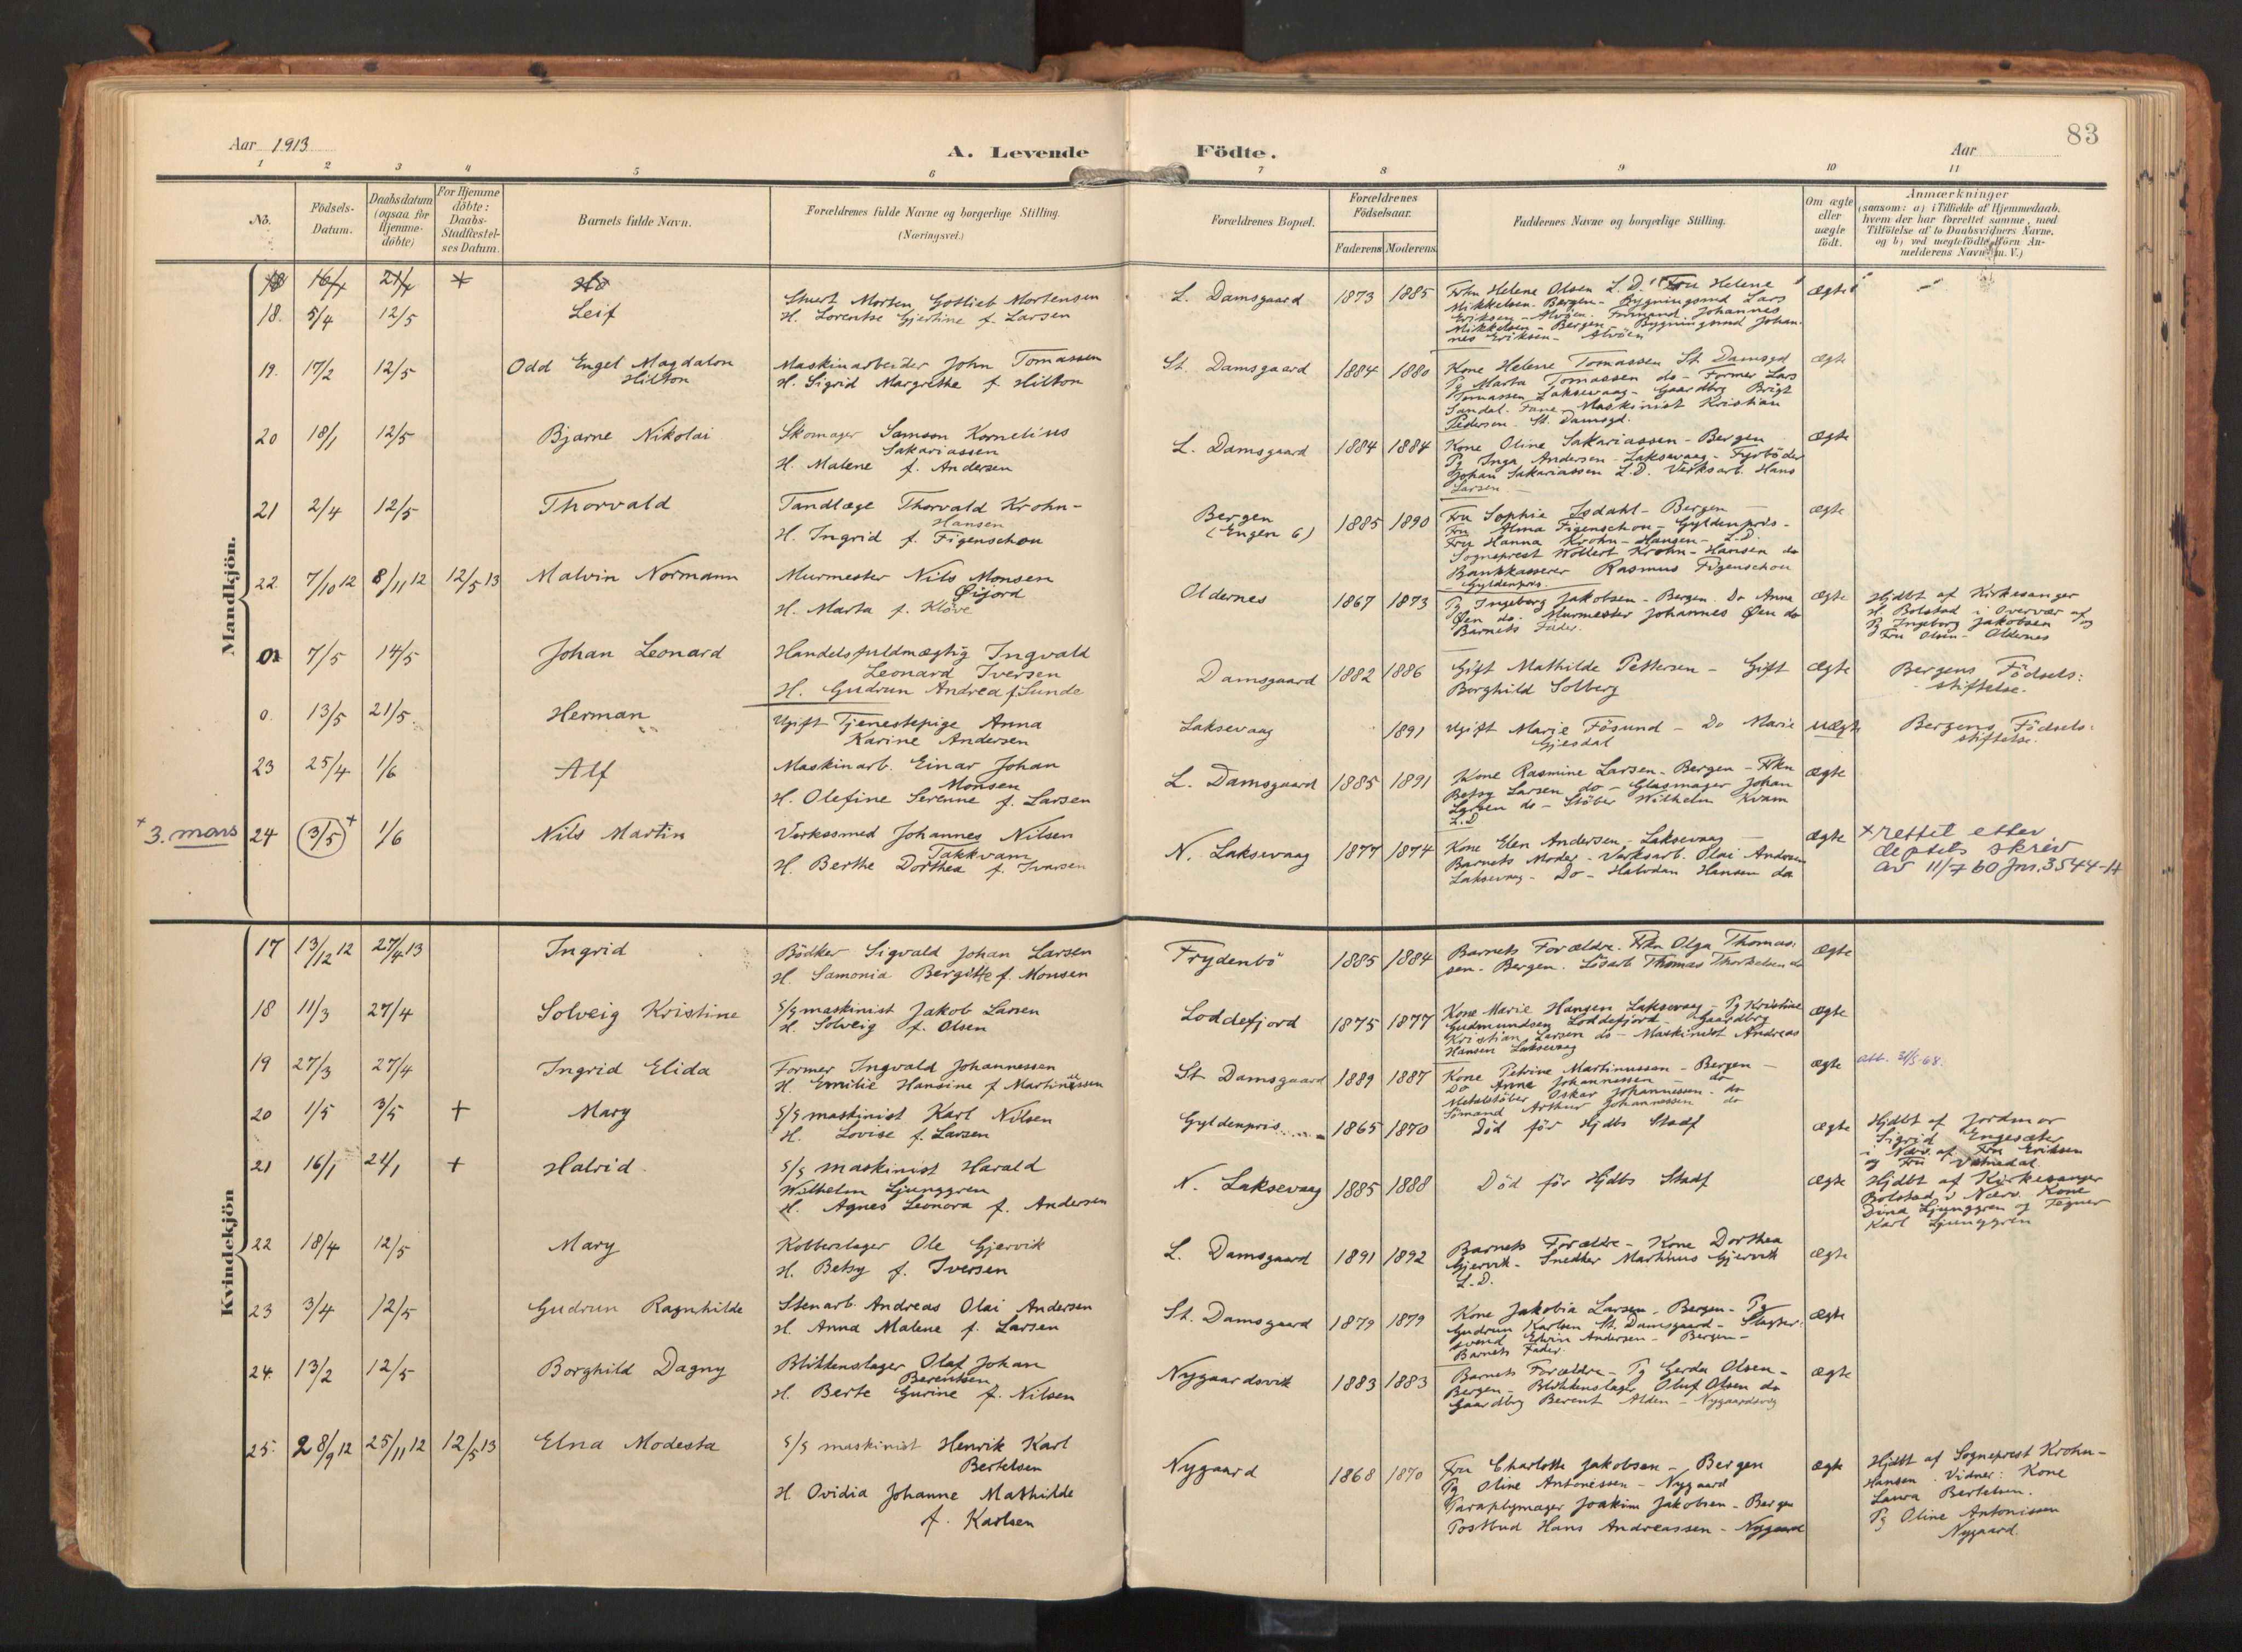 Aar 1913
A. Levende Födte.
Aar
83
1 2 3 4 5 6 7 8 9 10 11
No.
Födsels-Datum.
Daabsdatum (ogsaa for Hjemme-döbte)
For Hjemme döbte: Daabs-Stadfæstel-ses Datum.
Barnets fulde Navn.
Forældrenes fulde Navne og borgerlige Stilling.
(Næringsvei.)
Forældrenes Bopæl.
Forældrenes Födselsaar.
Faderens Moderens
Faddernes Navne og borgerlige Stilling.
Om ægte eller uægte födt.
Anmærkninger
(saasom: a) i Tilfælde af Hjemmedaab,
hvem der har forrettet samme, med
Tilföielse af to Daabsvidners Navne.
og b) ved uægtefödte Börn An-
melderens Navn m. V.)
Mandkjön.
18 16/4 21/4
18. 5/4 12/5 Leif
Stuert Morten Gottlieb Mortensen
H. Lorentse Gjertine f. Larsen
L. Damsgaard 1873 1885
Frkn Helene Olsen L.D. Fru Helene
Mikkelsen. Bergen - Bygningsmd Lars
Eriksen - Alvöen. Formand Johannes
Mikkelsen - Bergen - Bygningsmd Johan-
nes Eriksen - Alvöen
ægte
19. 17/2 12/5 Odd Engel Magdalon
Hilton
Maskinarbeider John Tomassen
H. Sigrid Margrethe f. Hilton
St. Damsgaard 1884 1880
Kone Helene Tomassen St. Damsgd
Pg Marta Tomassen do - Former Lars
Tomassen Laksevaag - Gaardbrg Brigt
Sandal. Fane - Maskinist Kristian
Pedersen. St. Damsgd.
ægte
20 18/1 12/5 Bjarne Nikolai
Skomager Samson Kornelius
Sakariassen
H. Malene f. Andersen
L. Damsgaard 1884 1884
Kone Oline Sakariassen - Bergen
Pg Inga Andersen - Laksevaag - Fyrböder
Johan Sakariassen L.D. Verksarb. Hans
Larsen
ægte
21 2/4 12/5 Thorvald
Tandlæge Thorvald Krohn-
Hansen
H. Ingrid f. Figenschou
Bergen
(Engen 6)
1885 1890
Fru Sophie Isdahl - Bergen
Fru Alma Figenschou - Gyldenpris -
Fru Hanna Krohn-Hansen - L.D.
Sogneprest Wollert Krohn-Hansen do
Bankkasserer Rasmus Figenschou
Gyldenpris.
ægte
22. 7/10 12 8/11 12 12/5 13 Malvin Normann
Murmester Nils Monsen
Øifjord
H. Marta f. Klöve
Oldernes 1867 1873
Pg Ingeborg Jakobsen - Bergen. Do Anna
Øen do. Murmester Johannes Øen do
Barnets Fader.
ægte
Hjdbt af Kirkesanger
H. Bolstad i Overvær af
Pg Ingeborg Jakobsen og
Fru Olsen - Oldernes
0 7/5 14/5 Johan Leonard
Handelsfuldmægtig Ingvald
Leonard Iversen
H. Gudrun Andrea f. Sunde
Damsgaard 1882 1886
Gift Mathilde Pettersen - Gift
Borghild Solberg
ægte
Bergens Födsels:
stiftelse.
0. 13/5 21/5. Herman
Ugift Tjenestepige Anna
Karine Andersen
Laksevaag 1891
Ugift Marie Fösund - Do Marie
Gjesdal
uægte
Bergens Födsels:
stiftelse.
23 25/4 1/6 Alf
Maskinarb. Einar Johan
Monsen
H. Olefine Serenne f. Larsen
L. Damsgaard 1885 1891
Kone Rasmine Larsen - Bergen - Frkn
Betsy Larsen do - Glasmager Johan
Larsen do - Stöber Wilhelm Kvam
L.D.
ægte
+ 3. mars 24 3/5 + 1/6 Nils Martin
Verkssmed Johannes Nilsen
Takkvam
H. Berthe Dorthea f. Ivarsen
N. Laksevaag 1877 1874
Kone Elen Andersen, Laksevaag
Barnets Moder - Verksarb. Olai Andersen
Laksevaag - Do - Halvdan Hansen do
ægte
+ rettet etter
deptets skriv
av 11/7 60 Jnr. 3544-H
Kvindekjön
17 13/12 12 27/4 13 Ingrid
Bödker Sigvald Johan Larsen
H. Samonia Bergitte f. Monsen
Frydenbö 1885 1884
Barnets Forældre. Frkn Olga Thomas:
sen - Bergen. Lösarb. Thomas Thorkelsen do
ægte
18 11/3 27/4 Solveig Kristine
S/S maskinist Jakob Larsen
H. Solveig f. Olsen
Loddefjord 1875 1877
Kone Marie Hansen Laksevaag - Pg Kristine
Gudmundsen Loddefjord - Gaardbrg
Kristian Larsen do - Maskinist Andreas
Hansen Laksevaag
ægte
19 27/3 27/4 Ingrid Elida
Former Ingvald Johannessen
H. Emilie Hansine f. Martinussen
St Damsgaard 1889 1887
Kone Petrine Martinussen - Bergen -
Do Anne Johannessen - do
Metalstöber Oskar Johannessen - do
Sömand Arthur Johannessen do
ægte
att. 31/5-68.
20 1/5 3/5 + Mary
S/S maskinist Karl Nilsen
H. Lovise f. Larsen
Gyldenpris 1865 1870
Död för Hjdbs Stadf
ægte
Hjdbt af Jordmor
Sigrid Engesæter
i Nærv. af Fru Eriksen
og Fru Vatnedal
21 16/1 21/1 + Halrid
S/S maskinist Harald
Wilhelm Ljunggren
H. Agnes Leonora f. Andersen
N. Laksevaag 1885 1888
Död för Hjdbs Stadf
ægte
Hjdbt af Kirkesanger
Bolstad i Nærv. Kone
Dina Ljunggren og Tegner
Karl Ljunggren
22 18/4 12/5 Mary
Kobberslager Ole Gjervik
H. Betsy f. Iversen
L. Damsgaard 1891 1892
Barnets Forældre - Kone Dorthea
Gjervik - Snedker Martinus Gjervik
L.D.
ægte
23 3/4 12/5 Gudrun Ragnhilde
Stenarb. Andreas Olai Andersen
H. Anna Malene f. Larsen
St. Damsgaard 1879 1879
Kone Jakobia Larsen - Bergen - Pg
Gudrun Karlsen St. Damsgaard - Slagter:
svend Edvin Andersen - Bergen -
Barnets Fader.
ægte
24. 13/2 12/5 Borghild Dagny
Blikkenslager Olaf Johan
Berentsen
H. Berte Gurine f. Nilsen
Nygaardsvik 1883 1883
Barnets Forældre - Pg Gerda Olsen -
Bergen - Blikkenslager Oluf Olsen do
Gaardbrg Berent Alden - Nygaardsvig
ægte
25. 28/9 12 25/11 12 12/5 13 Elna Modesta
S/S maskinist Henrik Karl
Bertelsen
H. Ovidia Johanne Mathilde
f. Karlsen
Nygaard 1868 1870
Fru Charlotte Jakobsen - Bergen
Pg Oline Antonessen - Nygaard
Paraplymager Joakim Jakobsen - Bergen
Postbud Hans Andreassen - Nygaard
ægte
Hjdbt af Sogneprest Krohn-
Hansen. Vidner: Kone
Laura Bertelsen.
Pg Oline Antonissen
Nygaard.